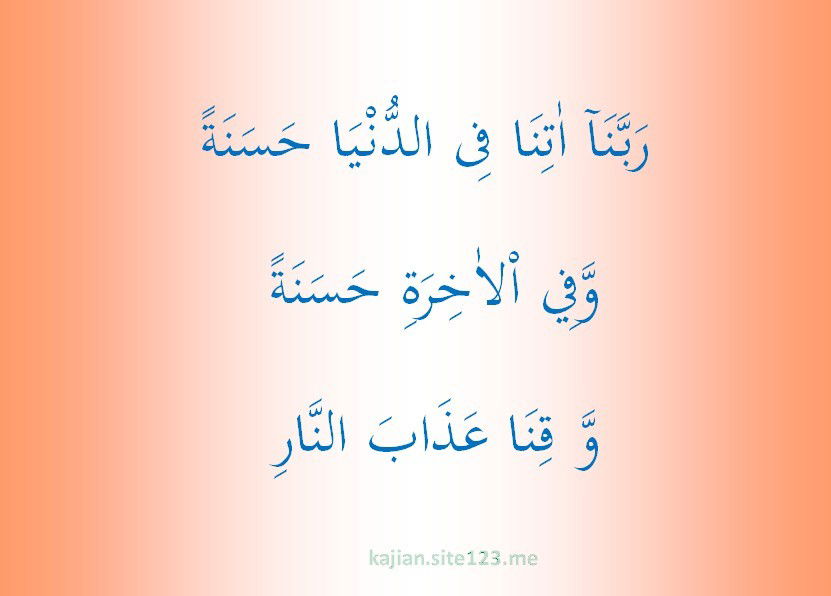 رَبَّنَآ اٰتِنَا فِى الدُّنْيَا حَسَنَةً
وَّفِي اْلاٰخِرَةِ حَسَنَةً
وَّ قِنَا عَذَابَ النَّارِ
kajian.site123.me